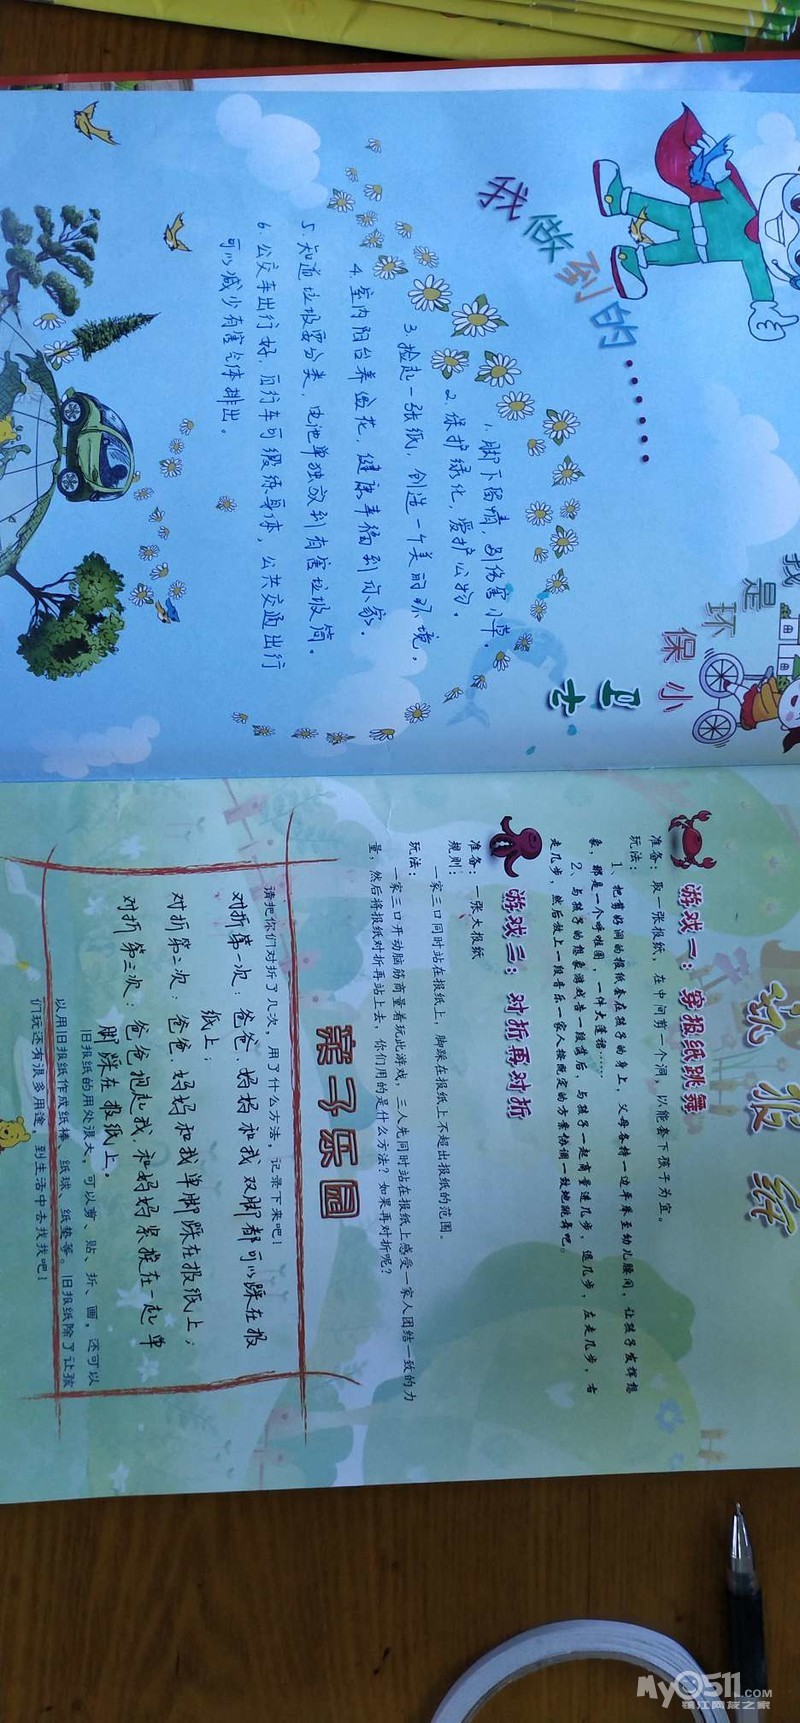 我是环
保小
卫士
我做到的……
1.脚下留情,别伤害小草。
2.保护绿化,爱护公物。
3.捡起一张纸,创造一个美丽环境。
4.室内阳台养盆花,健康幸福到你家。
5.知道垃圾要分类,电池单独放到有害垃圾筒。
6.公交车出行好,自行车可锻练身体,公共交通出行
可以减少有害气体排出。
玩报纸
游戏一:穿报纸跳舞
准备:取一张报纸,在中间剪一个洞,以能套下孩子为宜。
玩法:
1、把剪好洞的报纸套在孩子的身上,父母各持一边平举至幼儿腰间,让孩子发挥想
象,那是一个呼啦圈,一件大莲裙……
2、与孩子的想象游戏告一段落后,与孩子一起商量进几步,退几步,左走几步,右
走几步,然后放上一段音乐一家人按规定的方案协调一致地跳舞吧。
游戏二:对折再对折
准备:一张大报纸
规则:
一家三口同时站在报纸上,脚踩在报纸上不超出报纸的范围。
玩法:
一家三口开动脑筋商量着玩此游戏,三人先同时站在报纸上感受一家人团结一致的力
量,然后将报纸对折再站上去,你们用的是什么方法?如果再对折呢?
亲子乐园
请把你们对折了几次,用了什么方法,记录下来吧!
对折第一次:爸爸、妈妈和我双脚都可以踩在报
纸上;
对折第二次:爸爸、妈妈和我单脚踩在报纸上;
对折第三次:爸爸抱起我,和妈妈紧挨在一起单
脚踩在报纸上。
旧报纸的用处很大,可以剪、贴、折、画,还可以
以用旧报纸作成纸棒、纸球、纸垫等。旧报纸除了让孩
们玩还有很多用途,到生活中去找找吧!
My0511.COM
镇江网友之家